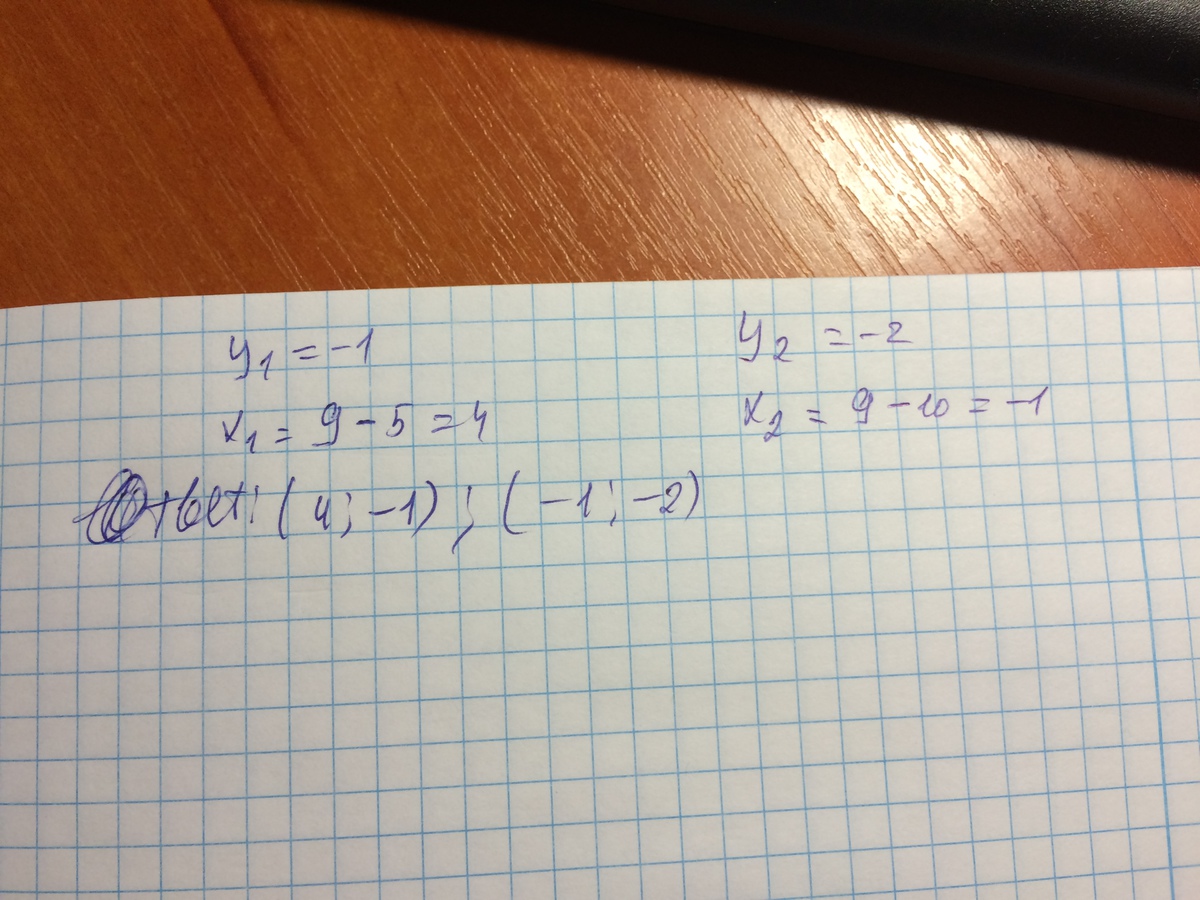 y₁ = -1
y₂ = -2
x₁ = 9 - 5 = 4
x₂ = 9 - 10 = -1
Ответ: (4; -1) ; (-1; -2)